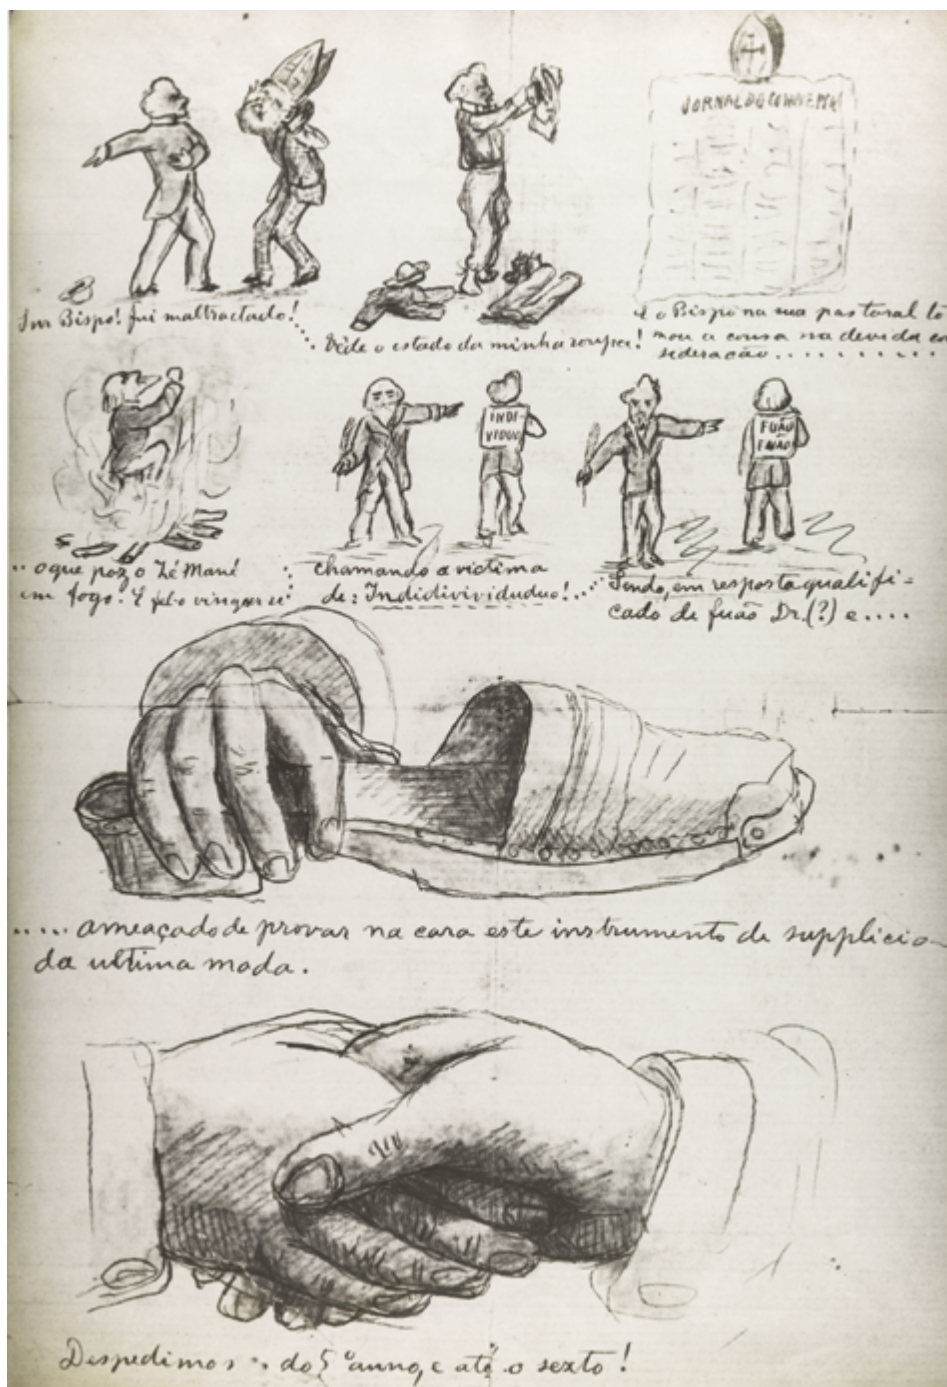 JORNAL DO COMMERCIO
Snr Bispo! fui maltractado!
Vêde o estado da minha roupa!
e o Bispo na sua pastoral to
mou a cousa na devida con
sideração..........
INDI-
VIDUO
FUÃO
FUÃO
.. o que poz o Zé Mané
em fogo. E fel-o vingar-se
chamando a victima
de: Indidivividuduo!...
Sendo, em resposta qualifi-
cado de fuão Dr. (?) e....
..... ameaçado de provar na cara este instrumento de supplicio
da ultima moda.
Despedimos do 5º anno, e até o sexto!